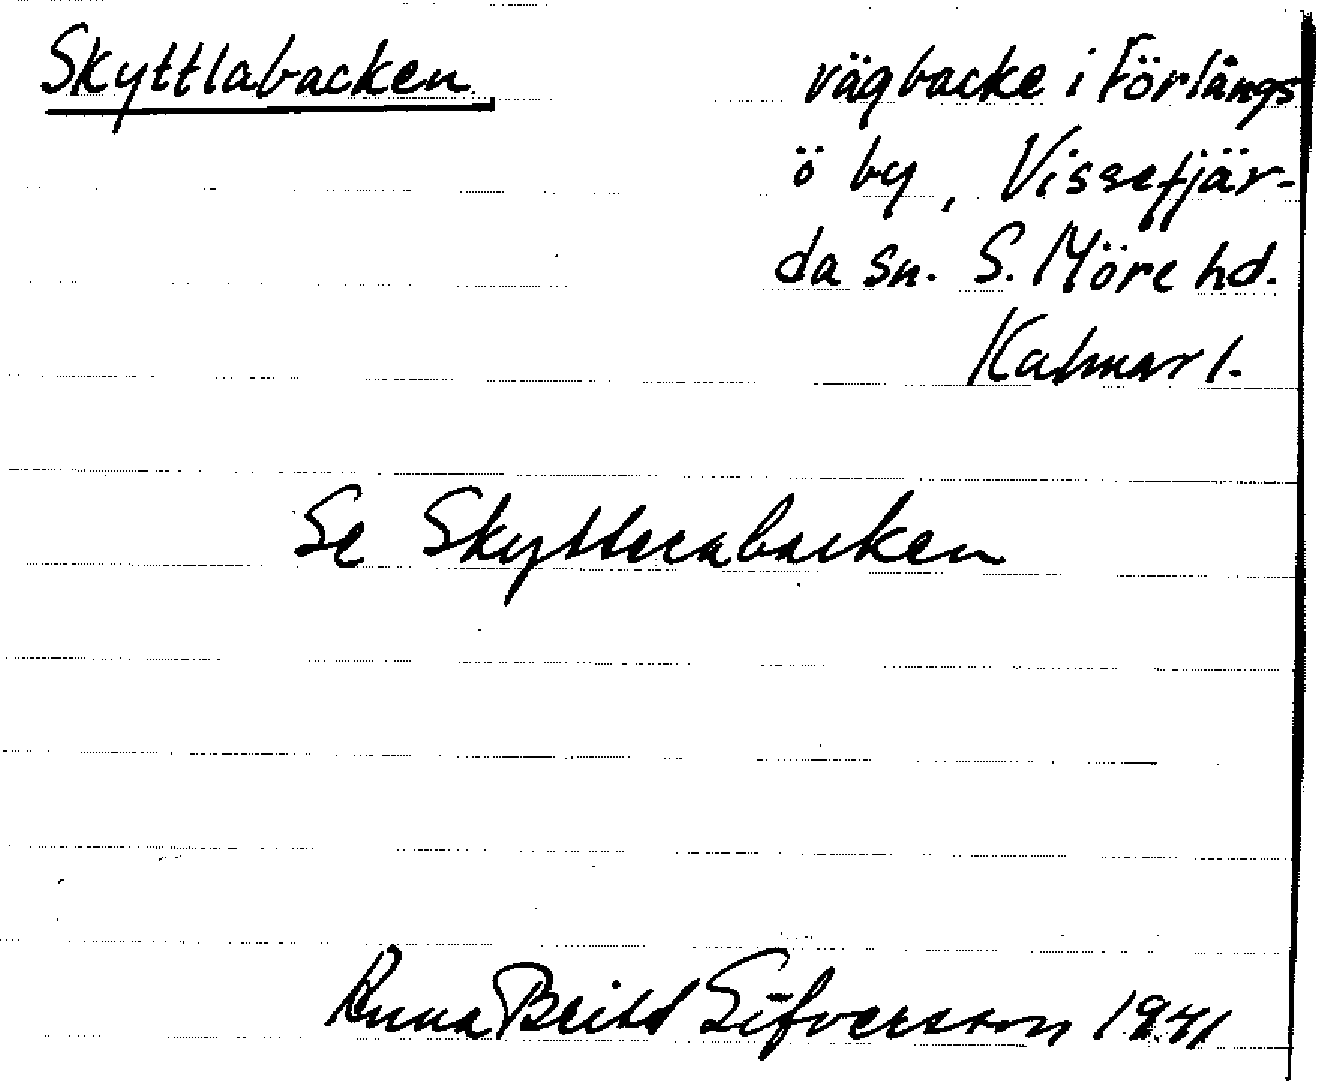 Skyttlabacken
vägbacke i Förlångs
ö by, Vissefjär-
da sn. S. Möre hd.
Kalmar l.
Se Skytteabacken
Anna Britd Sifversson 1941